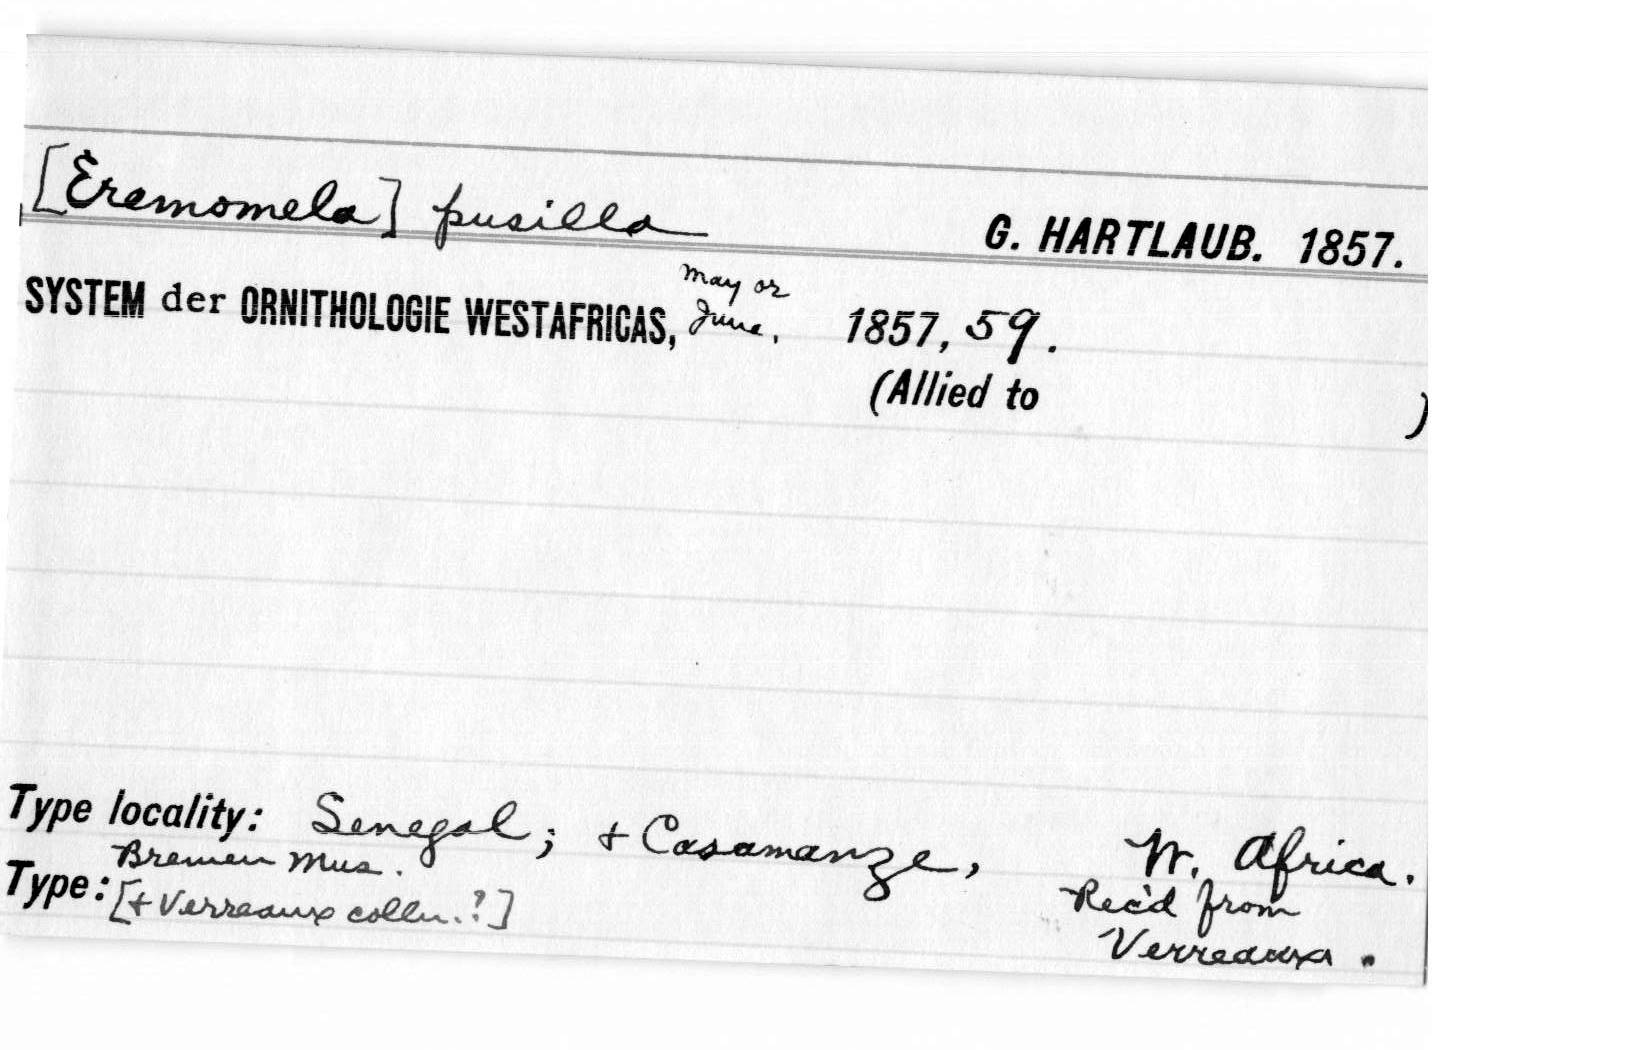 [Eremomela] pusilla G. HARTLAUB. 1857.
SYSTEM der ORNITHOLOGIE WESTAFRICAS, May or June. 1857, 59.
(Allied to )
Type locality: Senegal; + Casamanze, W. Africa.
Type: Bremen Mus. Rec'd from
[+ Verreaux colln.?] Verreaux.